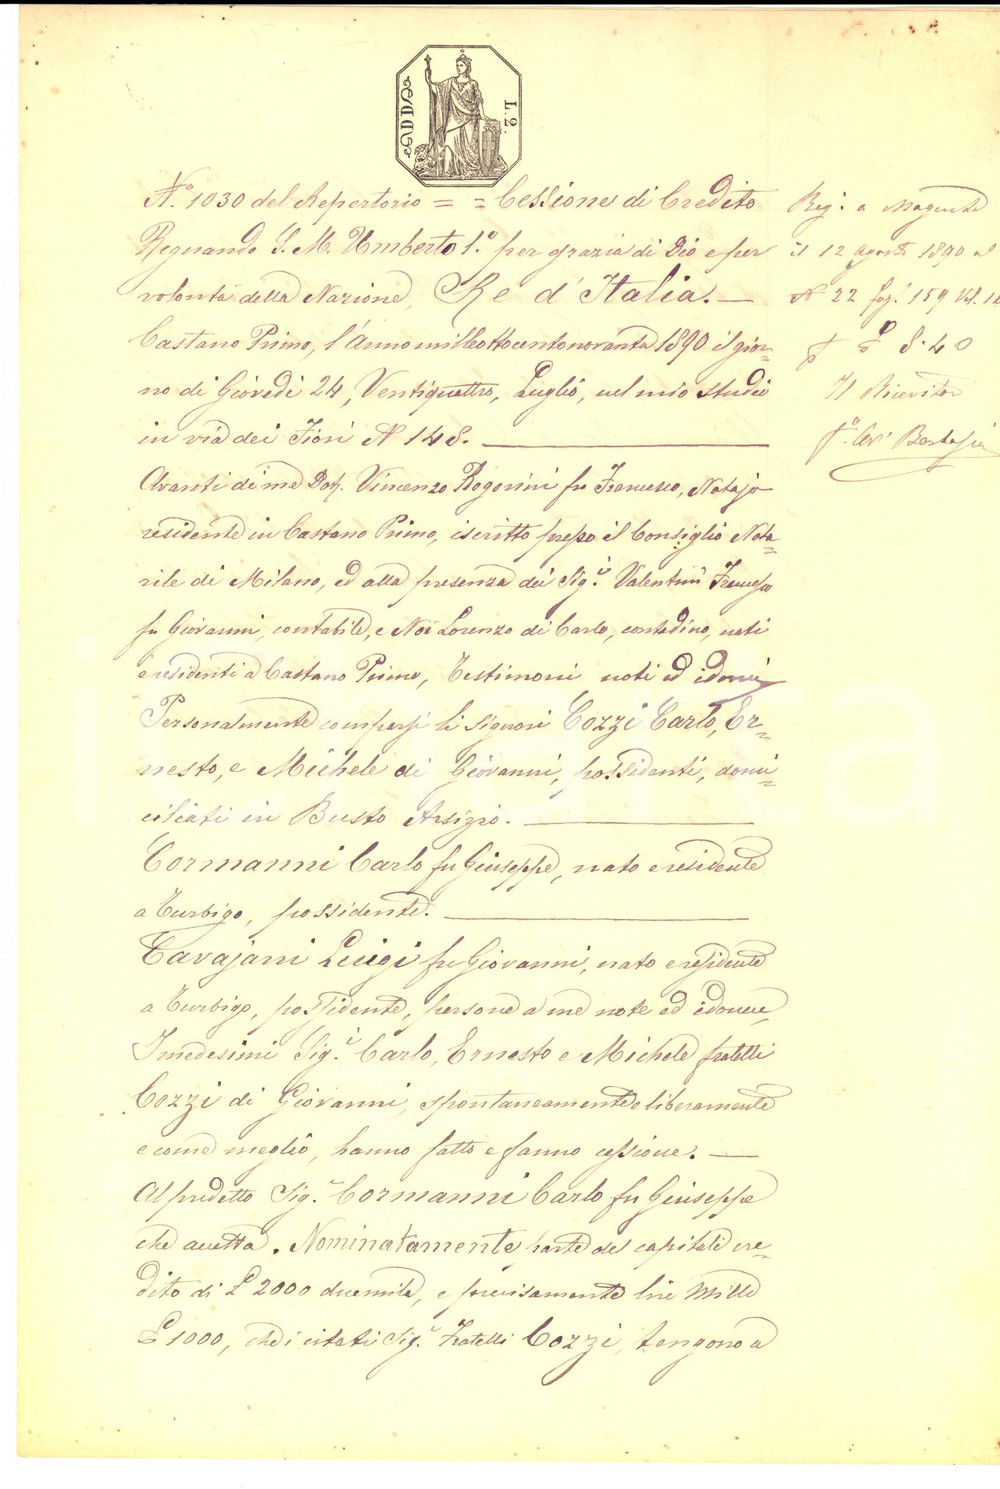 L. 2.
N.° 1030 del Repertorio = = Cessione di Credito
Regnando S. M. Umberto 1.° per grazia di Dio e per
volontà della Nazione, Re d'Italia. —
Castano Primo, l'Anno mille ottocentonovanta 1890 il gior=
no di Giovedì 24, Ventiquattro, Luglio, nel mio studio
in via dei Fiori N 148.
Avanti di me Dott. Vincenzo Rogorini fu Francesco, Notajo
residente in Castano Primo, iscritto presso il Consiglio Nota=
rile di Milano, ed alla presenza dei Sig.i Valentini Francesco
fu Giovanni, contabile, e Noè Lorenzo di Carlo, contadino, nati
e residenti a Castano Primo, Testimoni noti ed idonei
Personalmente comparsi li Signori Cozzi Carlo, Er=
nesto, e Michele di Giovanni, possidenti, domi=
ciliati in Busto Arsizio.
Cormanni Carlo fu Giuseppe, nato e residente
a Turbigo, possidente.
Tavajani Luigi fu Giovanni, nato e residente
a Turbigo, possidente, persone a me note ed idonee,
I medesimi Sig.i Carlo, Ernesto e Michele fratelli
Cozzi di Giovanni, spontaneamente e liberamente
e come meglio, hanno fatto e fanno cessione. —
Al predetto Sig.r Cormanni Carlo fu Giuseppe
che accetta. Nominatamente parte del capitale cre=
dito di £ 2000 duemila, e precisamente lire Mille
£ 1000, che i citati Sig.i Fratelli Cozzi, tengono a
Reg. a Magenta
il 12 Agosto 1890 al
N 22 fog. 159 Vol. 18
£ 8.40
Il Ricevitor
f.° Cav.